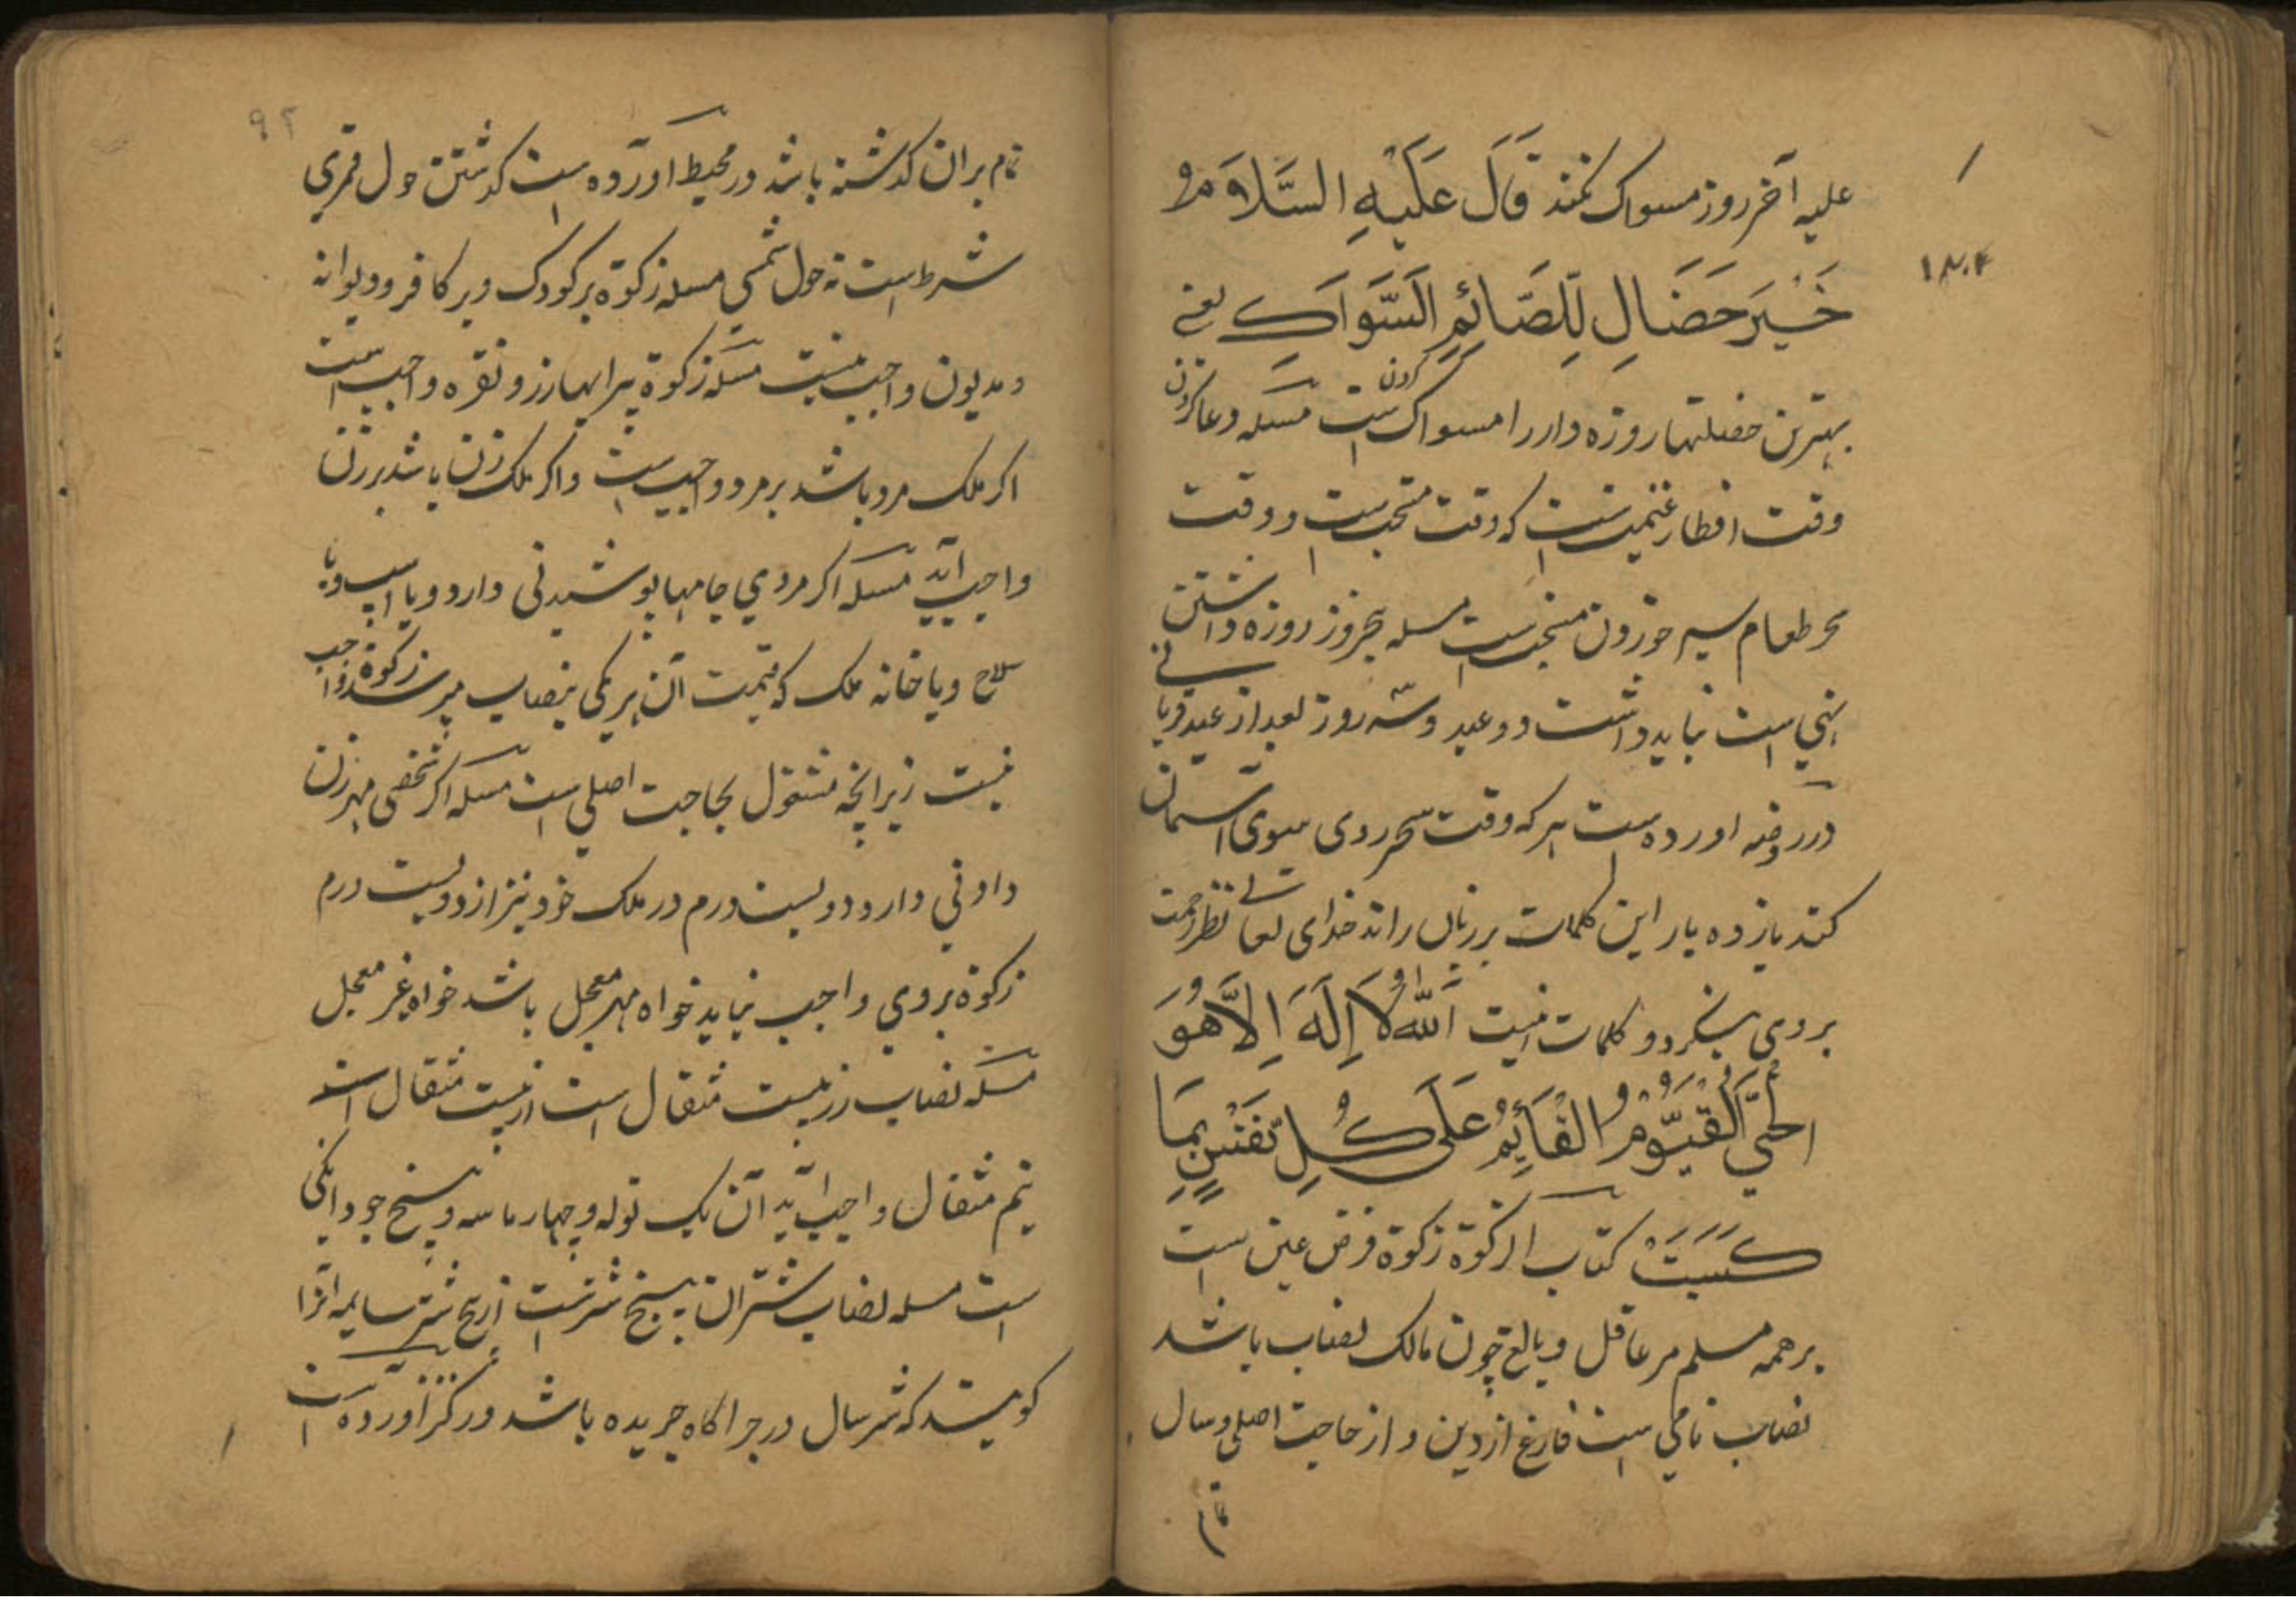 علیه آخر روز مسواک نکند قَالَ عَلَیْهِ السَّلَامُ
۱۸۰۴
خَیْرَ خَصَالِ لِلصَّائِمِ السَّوَاکِ یعنی
بهترین خصلتها روزه دار را مسواک کردن است مسئله دعا کردن
وقت افطار غنیمت است که وقت مستحب است و وقت
سحر طعام سیر خوردن مستحب است مسله پنجروز روزه داشتن
نهی است نباید داشت دو عید و سه روز بعد از عید قربانی
در روضه اورده است هر که وقت سحر روی سوی آسمان
کند یازده بار این کلمات بر زبان راند خدای تعالی نظر رحمت
بروی بنکرد و کلمات اینست اَللّٰهُ لَا اِلَهَ اِلَّا هُوَ
الْحَیُّ الْقَیُّوْمُ الْقَائِمُ عَلَی کُلِّ نَفْسٍ بِمَا
کَسَبَتْ کتاب الزکوة زکوة فرض عین است
بر همه مسلم مر عاقل و بالغ چون مالک نصاب باشد
نصاب نامی است فارغ از دین و از حاجت اصلی و سال
تمام
۹۲
تمام بران کذشته باشد در محیط آورده است کذشتن حول قمری
شرط است نه حول شمسی مسله زکوة بر کودک و بر کافر و دیوانه
و مدیون واجب نیست مسئله زکوة پیرایهاء زر و نقره واجب است
اکر ملک مرد باشد بر مرد واجب است و اکر ملک زن باشد بر زن
واجب آید مسئله اکر مردی جامها پوشیدنی دارد و یا اسپ و یا
سلاح و یا خانه ملک که قیمت آن هر یکی بنصاب میرسد زکوة واجب
نیست زیرانچه مشغول بحاجت اصلی است مسئله اکر شخصی مهر زن
دادنی دارد دویست درم در ملک خود نیز از دویست درم
زکوة بروی واجب نیاید خواه مهر معجل باشد خواه غیر معجل
مسئله نصاب زر بیست مثقال است از بیست مثقال است
نیم مثقال واجب آید آن یک توله و چهار ماسه و پنج جو دانکی
است مسله نصاب شتران پنج شتر است از پنج شتر سایمه آنرا
کویند که شتر سال در چراکاه چریده باشد در کنز آورده است